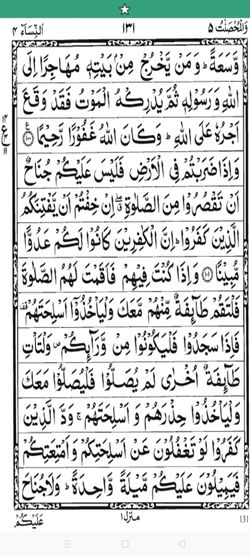 وَالْمُحْصَنٰتُ ٥ ١٣١ اَلنِّسَآءِ ٤
وَّسَعَةً ؕ وَمَنْ يَّخْرُجْ مِنْۢ بَيْتِهٖ مُهَاجِرًا اِلَى
اللّٰهِ وَرَسُوْلِهٖ ثُمَّ يُدْرِكْهُ الْمَوْتُ فَقَدْ وَقَعَ
اَجْرُهٗ عَلَى اللّٰهِ ؕ وَكَانَ اللّٰهُ غَفُوْرًا رَّحِيْمًا ﴿١٠٠﴾
وَاِذَا ضَرَبْتُمْ فِى الْاَرْضِ فَلَيْسَ عَلَيْكُمْ جُنَاحٌ
اَنْ تَقْصُرُوْا مِنَ الصَّلٰوةِ ۖ اِنْ خِفْتُمْ اَنْ يَّفْتِنَكُمُ
الَّذِيْنَ كَفَرُوْا ؕ اِنَّ الْكٰفِرِيْنَ كَانُوْا لَكُمْ عَدُوًّا
مُّبِيْنًا ﴿١٠١﴾ وَاِذَا كُنْتَ فِيْهِمْ فَاَقَمْتَ لَهُمُ الصَّلٰوةَ
فَلْتَقُمْ طَآئِفَةٌ مِّنْهُمْ مَّعَكَ وَلْيَاْخُذُوْۤا اَسْلِحَتَهُمْ
فَاِذَا سَجَدُوْا فَلْيَكُوْنُوْا مِنْ وَّرَآئِكُمْ ۪ وَلْتَاْتِ
طَآئِفَةٌ اُخْرٰى لَمْ يُصَلُّوْا فَلْيُصَلُّوْا مَعَكَ
وَلْيَاْخُذُوْا حِذْرَهُمْ وَاَسْلِحَتَهُمْ ۚ وَدَّ الَّذِيْنَ
كَفَرُوْا لَوْ تَغْفُلُوْنَ عَنْ اَسْلِحَتِكُمْ وَاَمْتِعَتِكُمْ
فَيَمِيْلُوْنَ عَلَيْكُمْ مَّيْلَةً وَّاحِدَةً ؕ وَلَا جُنَاحَ
عَلَيْكُمْ منزل ١ 131